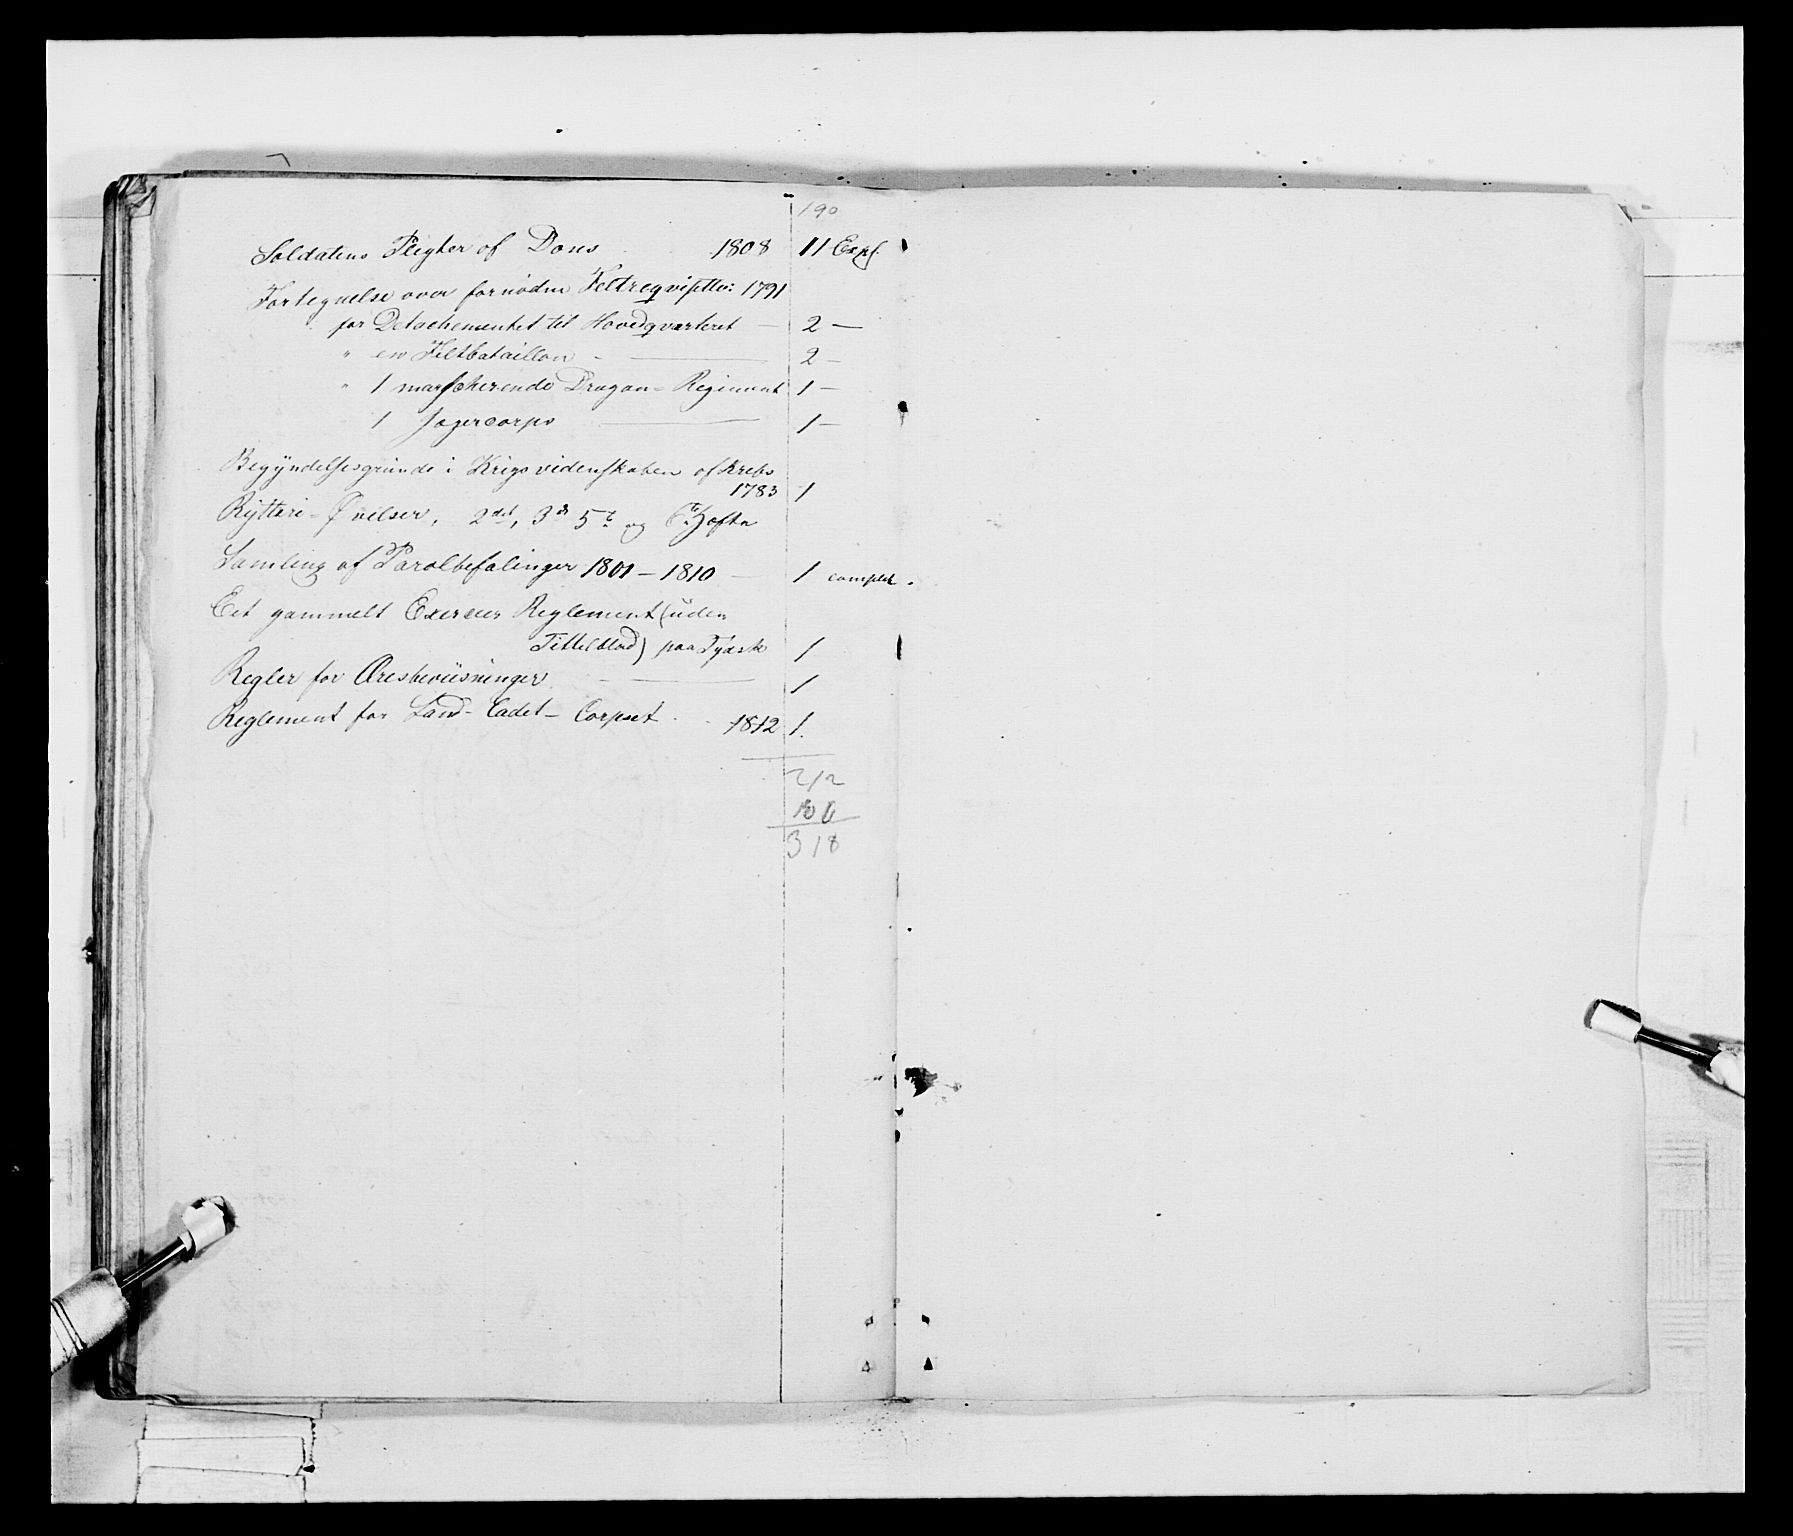 190
Soldatens Pligter af Dons 1808 11 Expl.
Fortegnelse over fornødne Feltreqvisitter 1791
for Detachementet til Hovedqvarteret — 2 —
" en Feltbataillon — 2 —
" 1 marscherende Dragon-Regiment 1 —
1 Jægercorps — 1 —
Begyndelsesgrunde i Krigsvidenskaben af Krebs
1783 1
Rytteri-Øvelser, 2det, 3d 5t og 6t Hefte
Samling af Parolbefalinger 1801 — 1810 — 1 complet.
Eet gammelt Exerceer Reglement (uden
Tittelblad) paa Tydsk 1
Regler for Æresbeviisninger — 1
Reglement for Land-Cadet-Corpset . . 1812 1.
212
106
318